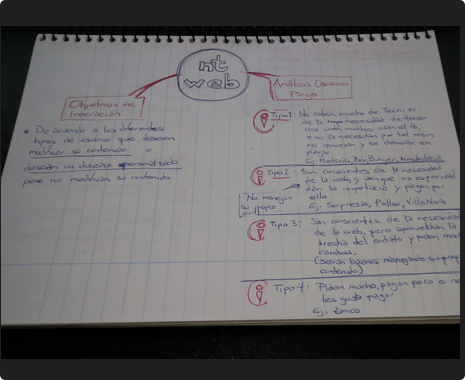 nt
web
Objetivos de
Interacción
De acuerdo a los diferentes
tipos de usuario que desean
modificar su contenido o
desean un diseño personalizado
pero no modificar su contenido
Análisis Usuario
Pago
Tipo 1: No saben mucho de Tecn, ni
de la necesidad de tener
una web, muchos
no la necesitan por tal razón
no renuevan y se demoran en
pagar
Ej: Maderas Inmobiliaria
Tipo 2: Son conscientes de la necesidad
de la web y aunque no
dan la importancia y pagan por
ella.
Ej: Sorpresas, Pallas, Villa
No manejan
su propio
Tipo 3: Son conscientes de la necesidad
de la web, pero aprovechan la
brecha del contrato y piden
cambios,
(Serán buenos manejando su
contenido)
Tipo 4: Piden mucho, pagan poco o no
les gusta pagar
Ej: